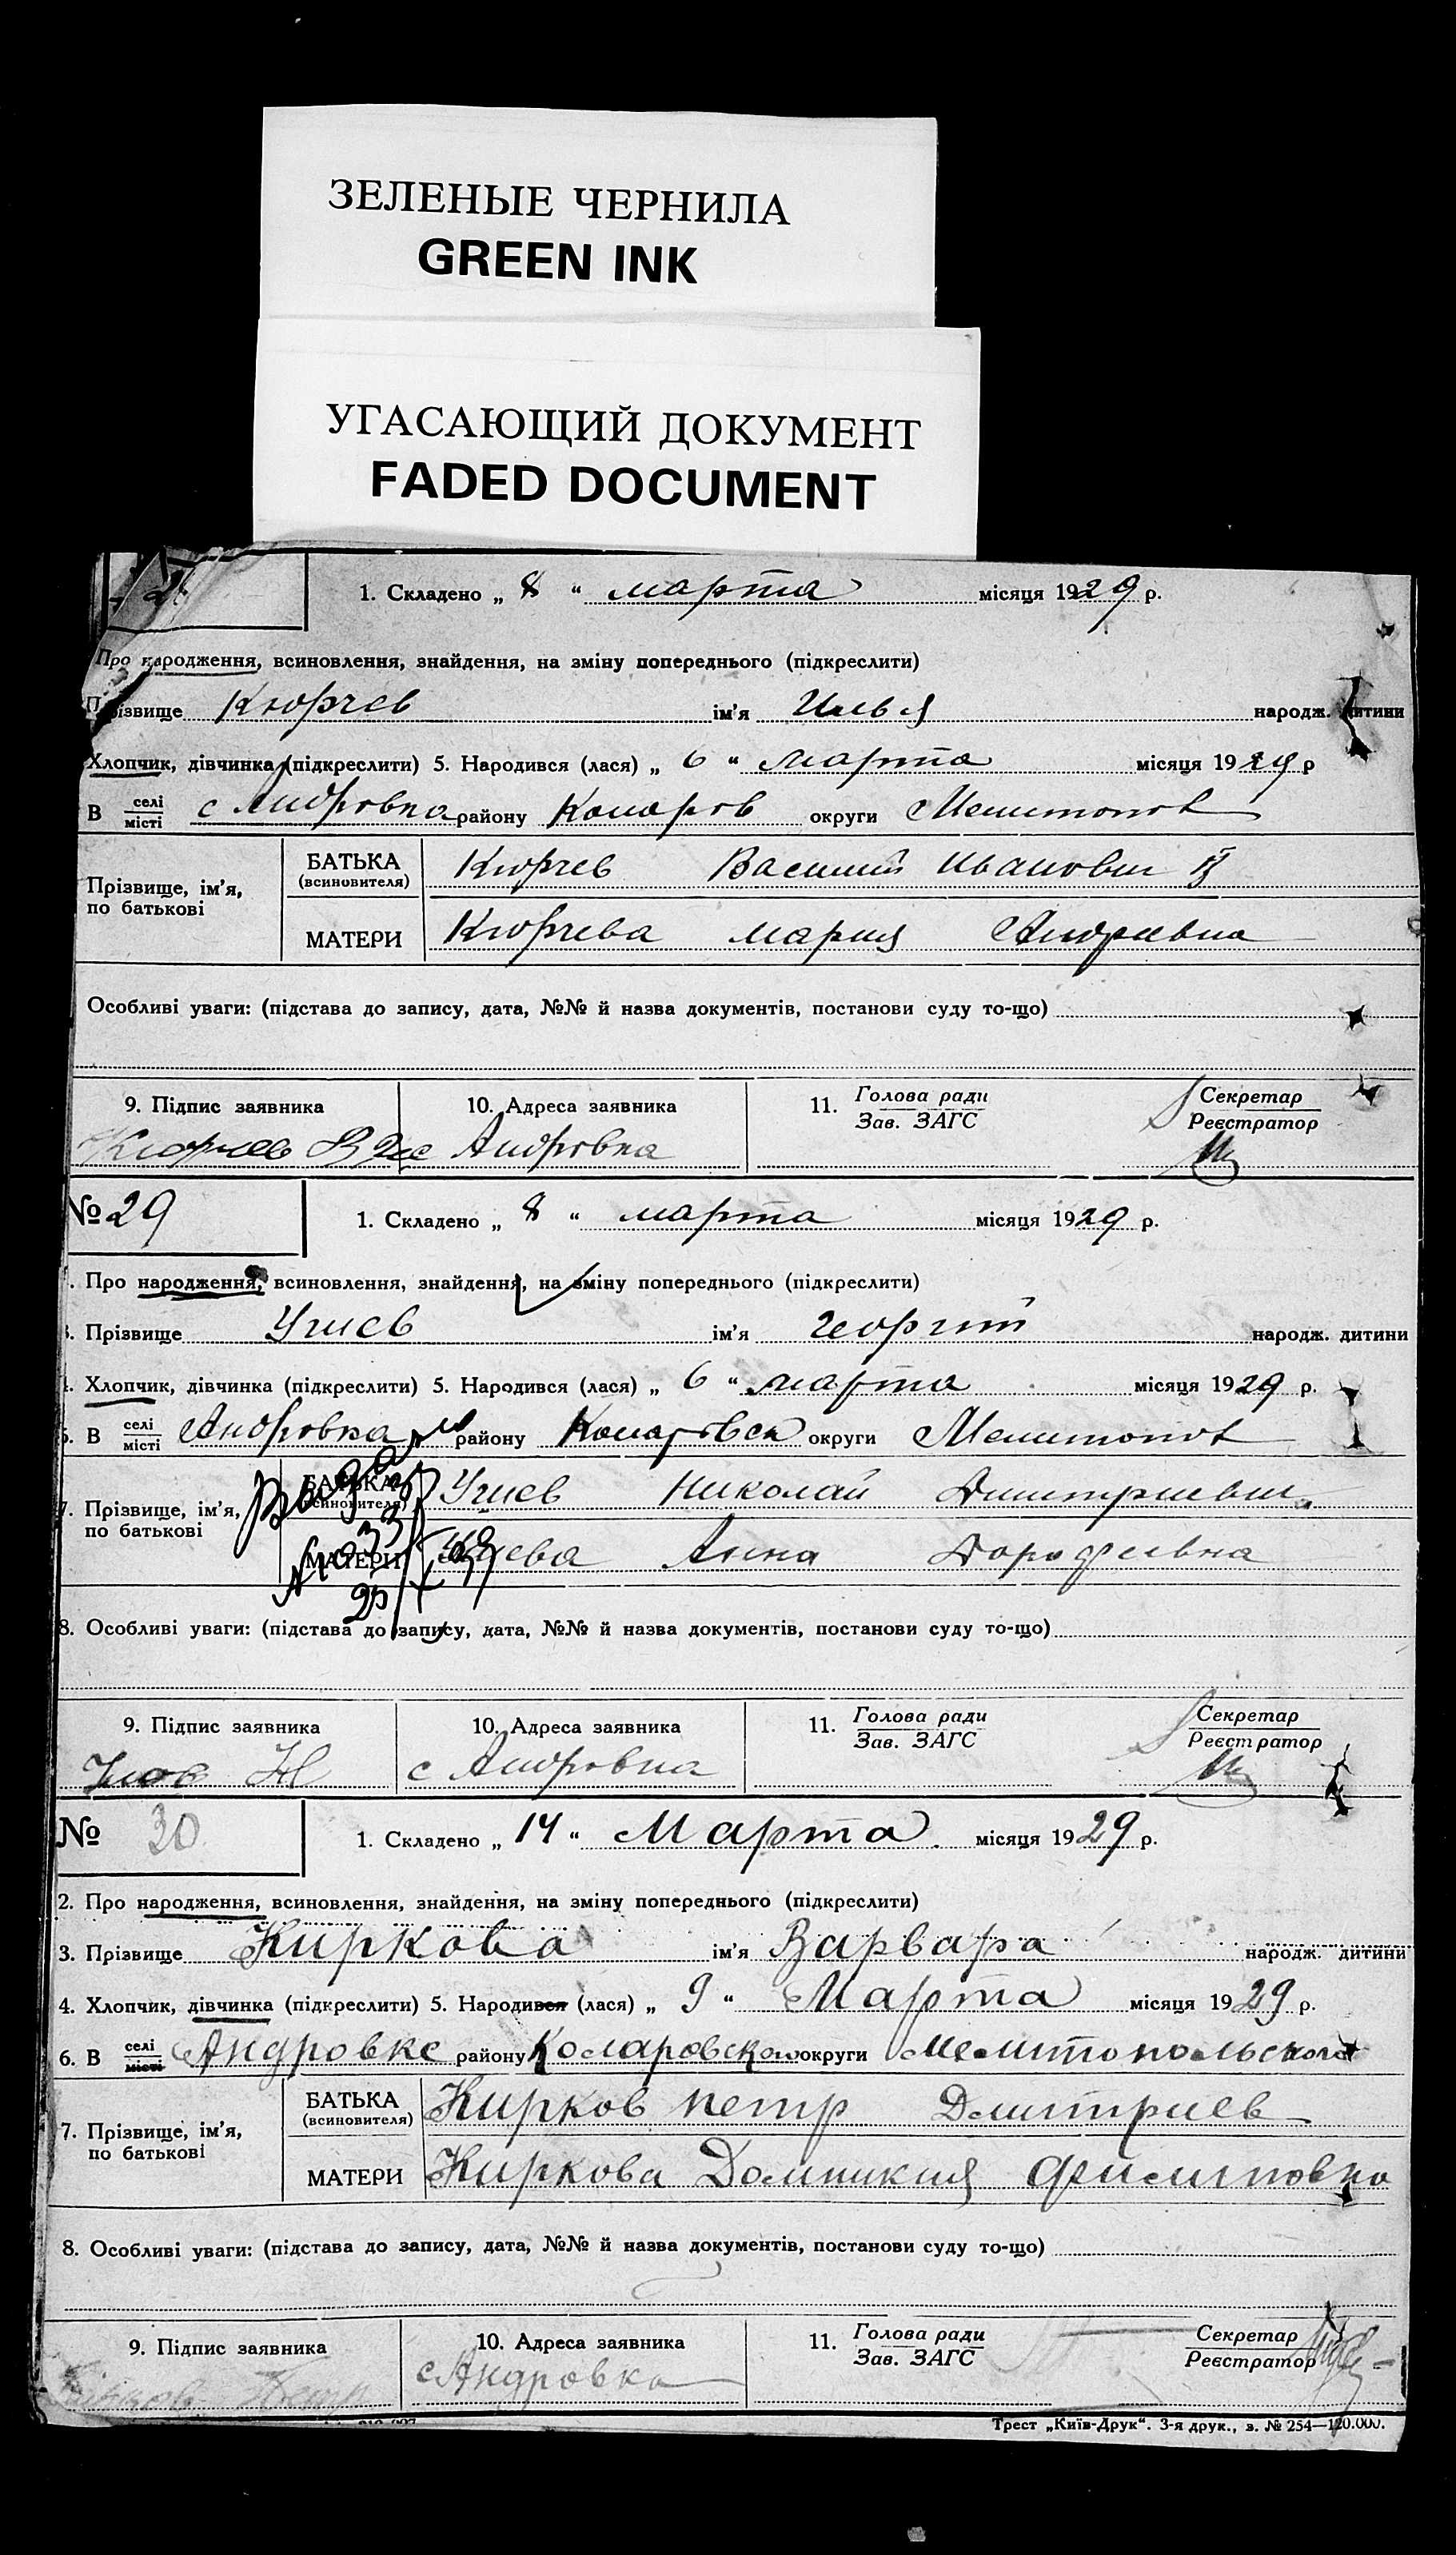 ЗЕЛЕНЫЕ ЧЕРНИЛА
GREEN INK
УГАСАЮЩИЙ ДОКУМЕНТ
FADED DOCUMENT
1. Складено „ 8 “ марта місяця 1929 р.
Про народження, всиновлення, знайдення, на зміну попереднього (підкреслити)
Прізвище Кюрчев ім’я Илья народж. дитини
Хлопчик, дівчинка (підкреслити) 5. Народився (лася) „ 6 “ марта місяця 1929 р
В селі місті с Андровка району Коларов округи Мелитопол
Прізвище, ім’я, по батькові
БАТЬКА (всиновителя) Кюрчев Василий Иванович
МАТЕРИ Кюрчева Мария Андреевна
Особливі уваги: (підстава до запису, дата, №№ й назва документів, постанови суду то-що)
9. Підпис заявника 10. Адреса заявника 11. Голова ради Зав. ЗАГС Секретар Реєстратор
Кюрчев Андровка
№ 29 1. Складено „ 8 “ марта місяця 1929 р.
. Про народження, всиновлення, знайдення, на зміну попереднього (підкреслити)
3. Прізвище Узиев ім’я Георгий народж. дитини
4. Хлопчик, дівчинка (підкреслити) 5. Народився (лася) „ 6 “ марта місяця 1929 р.
6. В селі місті Андровка району Коларовск округи Мелитопол
7. Прізвище, ім’я, по батькові
БАТЬКА (всиновителя) Николай Дмитриевич
МАТЕРИ Анна Дорофеевна
8. Особливі уваги: (підстава до запису, дата, №№ й назва документів, постанови суду то-що)
9. Підпис заявника 10. Адреса заявника 11. Голова ради Зав. ЗАГС Секретар Реєстратор
с Андровка
№ 30 1. Складено „ 14 “ Марта місяця 1929 р.
2. Про народження, всиновлення, знайдення, на зміну попереднього (підкреслити)
3. Прізвище Киркова ім’я Варвара народж. дитини
4. Хлопчик, дівчинка (підкреслити) 5. Народився (лася) „ 9 “ Марта місяця 1929 р.
6. В селі місті Андровке району Коларовском округи Мелитопольского
7. Прізвище, ім’я, по батькові
БАТЬКА (всиновителя) Кирков Петр Дмитриев
МАТЕРИ Киркова Домникия Филиповна
8. Особливі уваги: (підстава до запису, дата, №№ й назва документів, постанови суду то-що)
9. Підпис заявника 10. Адреса заявника 11. Голова ради Зав. ЗАГС Секретар Реєстратор
с Андровка
Трест „Київ-Друк“. 3-я друк., з. № 254—120.000.